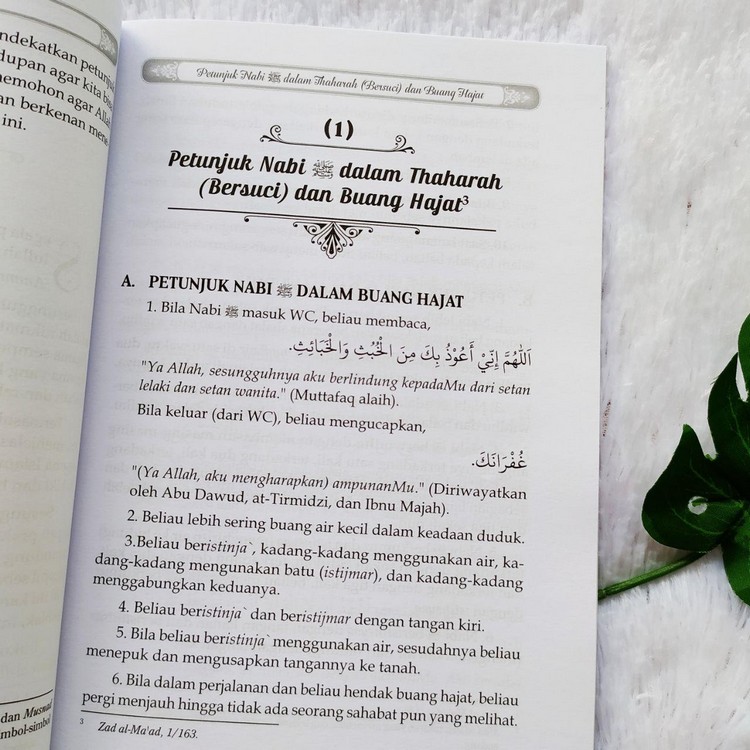 ndekatkan petunju
dupan agar kita bis
emohon agar Alla
an berkenan mene
ini.
dan Musnad
mbol-simbol
Petunjuk Nabi ﷺ dalam Thaharah (Bersuci) dan Buang Hajat
(1)
Petunjuk Nabi ﷺ dalam Thaharah
(Bersuci) dan Buang Hajat³
A. PETUNJUK NABI ﷺ DALAM BUANG HAJAT
1. Bila Nabi ﷺ masuk WC, beliau membaca,
اَللّٰهُمَّ إِنِّيْ أَعُوْذُ بِكَ مِنَ الْخُبُثِ وَالْخَبَائِثِ.
"Ya Allah, sesungguhnya aku berlindung kepadaMu dari setan
lelaki dan setan wanita." (Muttafaq alaih).
Bila keluar (dari WC), beliau mengucapkan,
غُفْرَانَكَ.
"(Ya Allah, aku mengharapkan) ampunanMu." (Diriwayatkan
oleh Abu Dawud, at-Tirmidzi, dan Ibnu Majah).
2. Beliau lebih sering buang air kecil dalam keadaan duduk.
3.Beliau beristinja`, kadang-kadang menggunakan air, ka-
dang-kadang mengunakan batu (istijmar), dan kadang-kadang
menggabungkan keduanya.
4. Beliau beristinja` dan beristijmar dengan tangan kiri.
5. Bila beliau beristinja` menggunakan air, sesudahnya beliau
menepuk dan mengusapkan tangannya ke tanah.
6. Bila dalam perjalanan dan beliau hendak buang hajat, beliau
pergi menjauh hingga tidak ada seorang sahabat pun yang melihat.
³ Zad al-Ma'ad, 1/163.